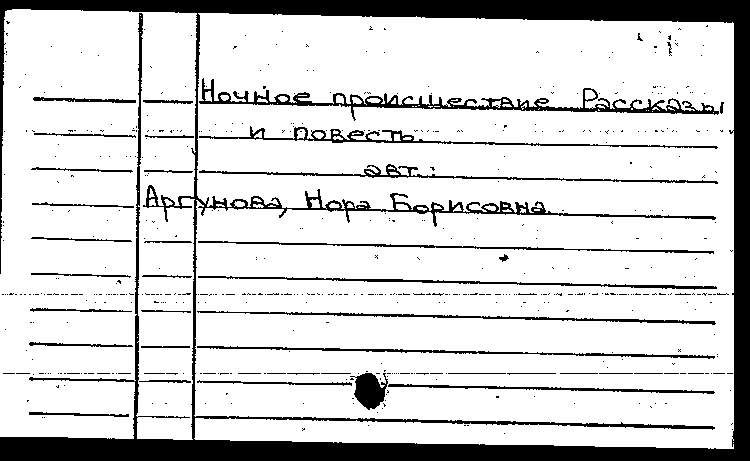 Ночное происшествие Рассказы
и повесть.
авт.:
Аргунова, Нора Борисовна